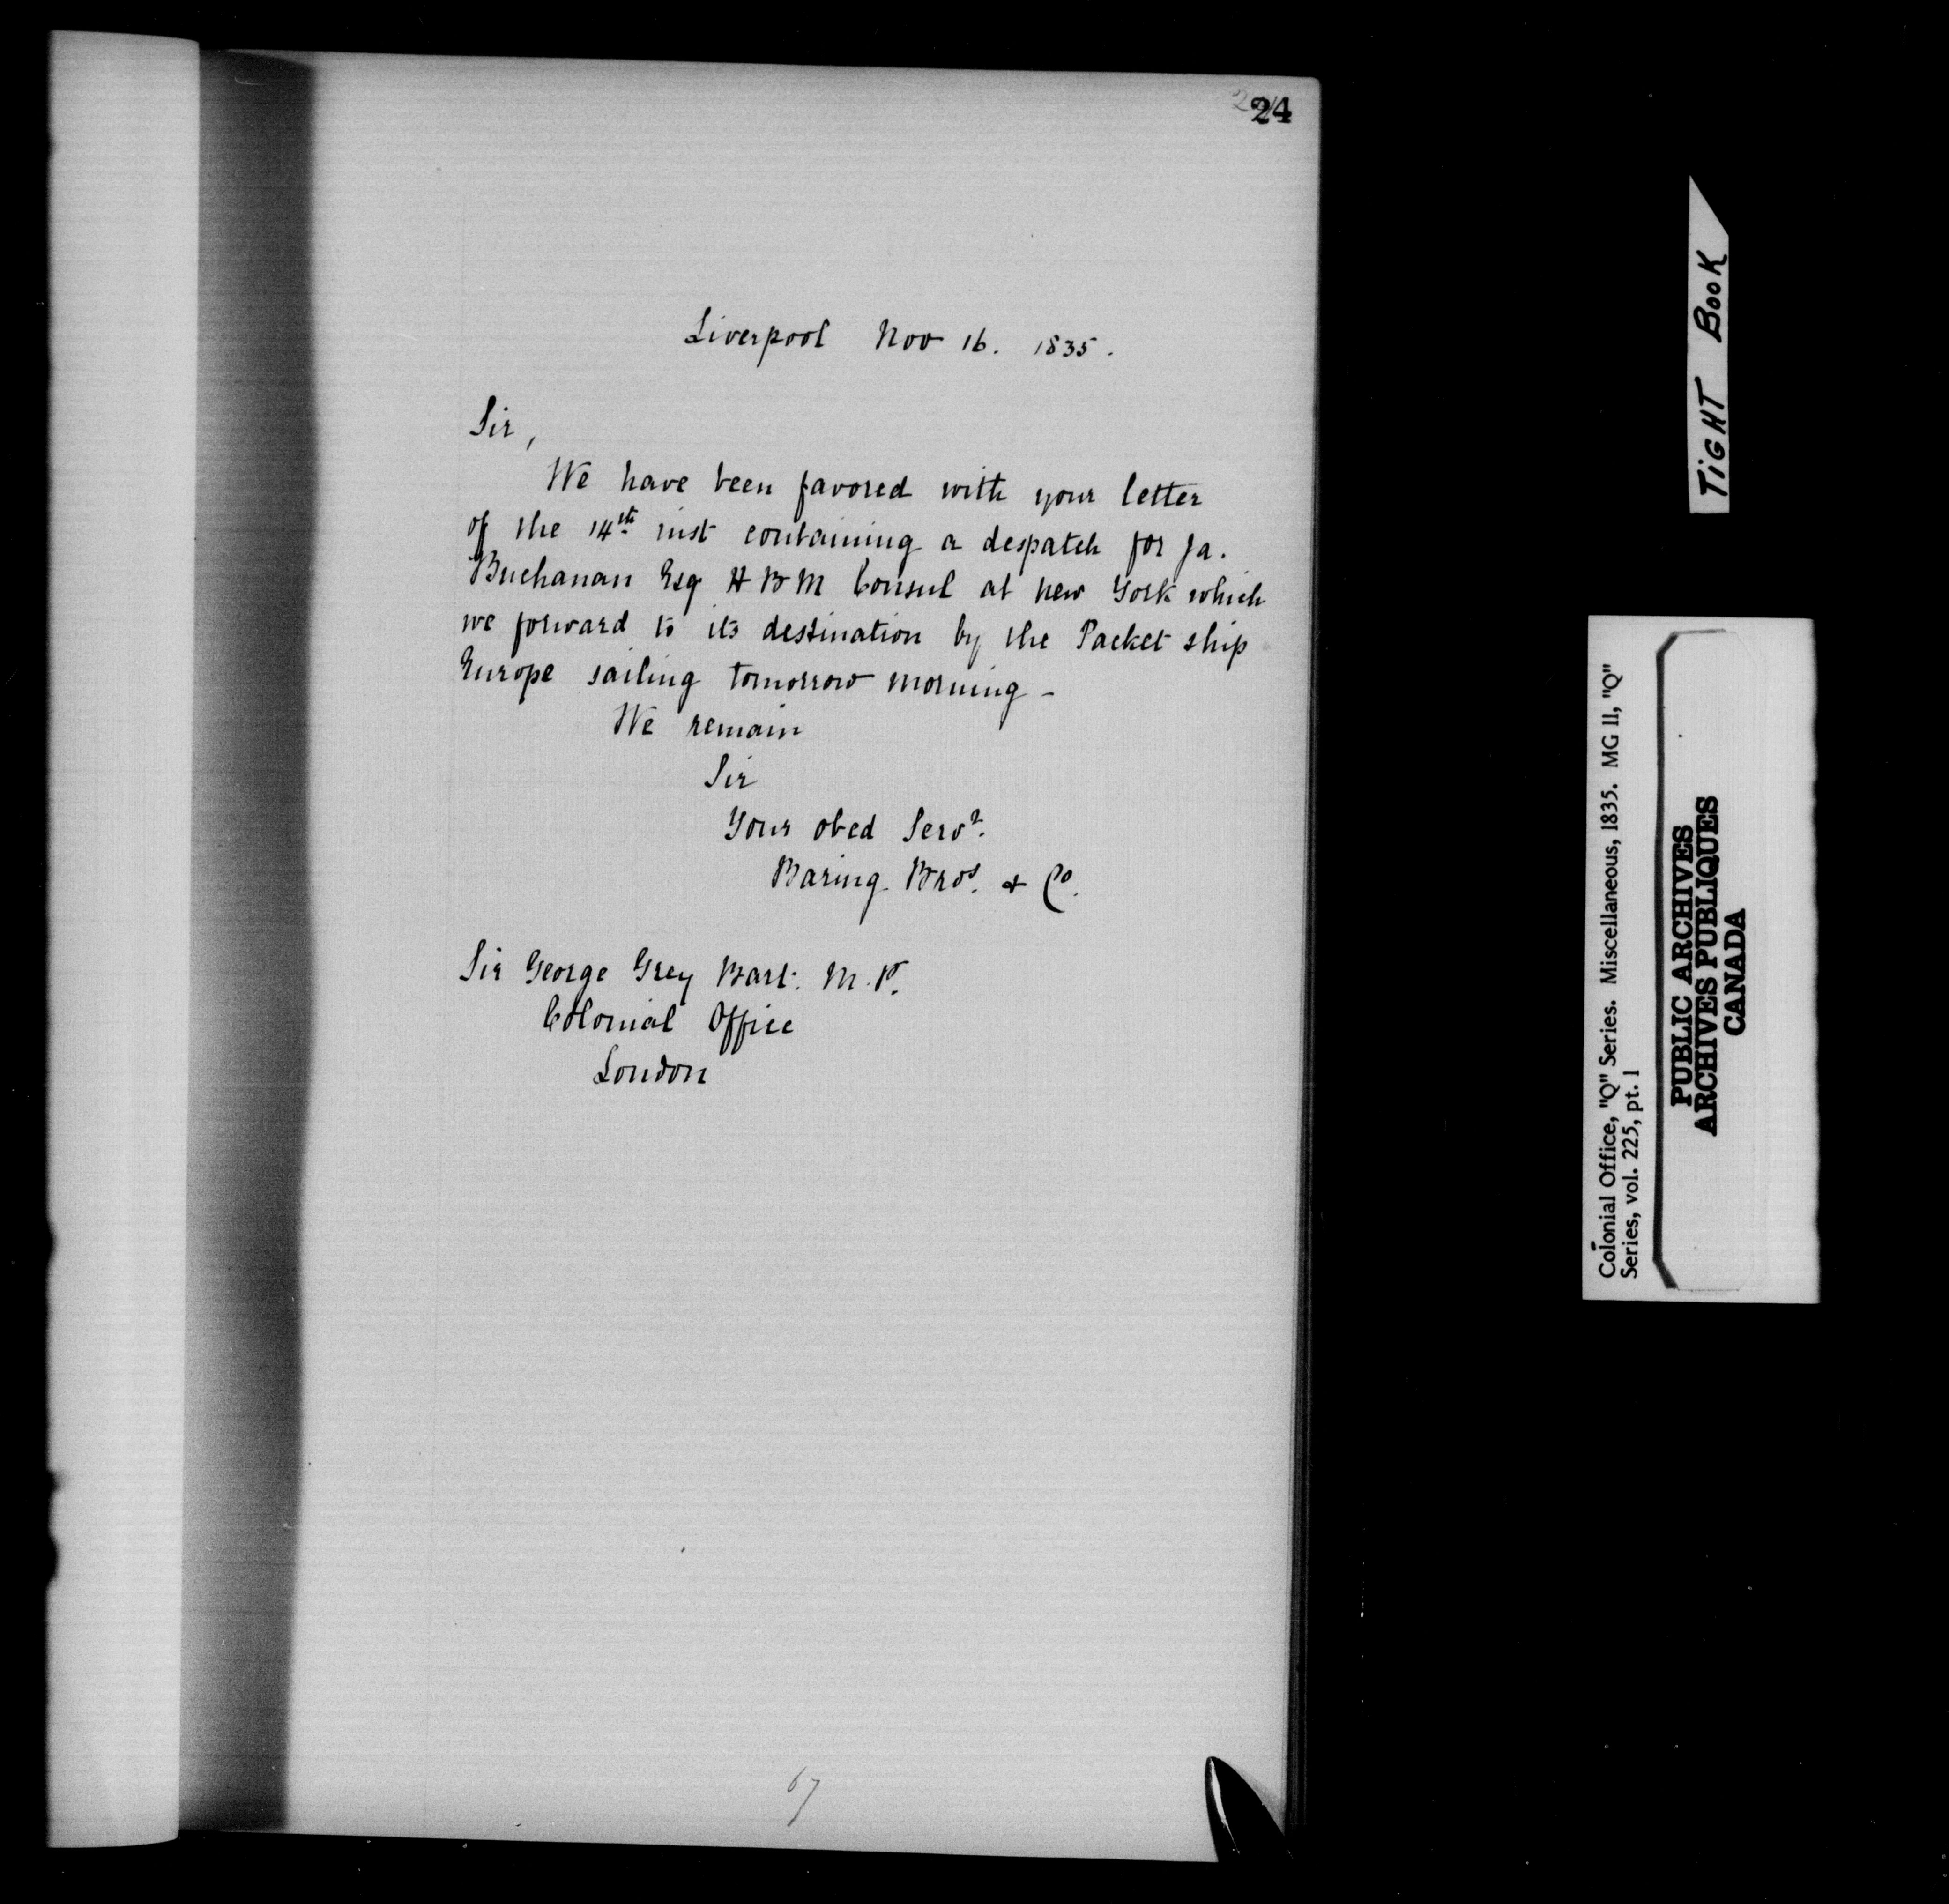 24
Liverpool Nov 16. 1835.
Sir,
We have been favored with your letter
of the 14th inst containing a despatch for Ja.
Buchanan Esq H B M Consul at New York which
we forward to its destination by the Packet ship
Europe sailing tomorrow morning -
We remain
Sir
Your obed Servt.
Baring Bros. & Co.
Sir George Grey Bart. M.P.
Colonial Office
London
67
TIGHT BOOK
Colonial Office, "Q" Series. Miscellaneous, 1835. MG 11, "Q"
Series, vol. 225, pt. 1
PUBLIC ARCHIVES
ARCHIVES PUBLIQUES
CANADA